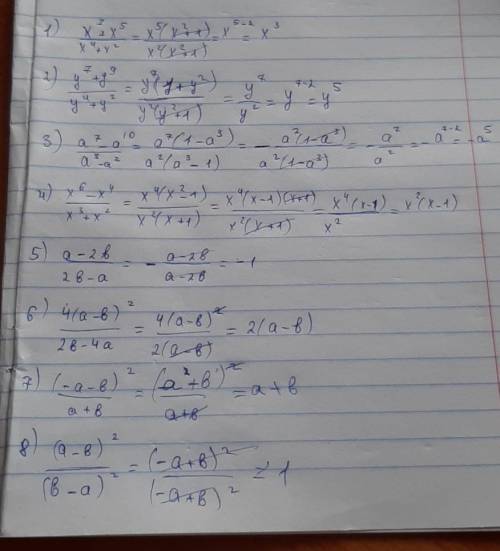 1) (x⁷+x⁵)/(x⁴+x²) = (x⁵(x²+1))/(x²(x²+1)) = x⁵⁻² = x³
2) (y⁷+y⁹)/(y⁴+y²) = (y⁷(1+y²))/(y²(y²+1)) = y⁷/y² = y⁷⁻² = y⁵
3) (a⁷-a¹⁰)/(a⁵-a²) = (a⁷(1-a³))/(a²(a³-1)) = - (a⁷(1-a³))/(a²(1-a³)) = - a⁷/a² = -a⁷⁻² = -a⁵
4) (x⁶-x⁴)/(x³+x²) = (x⁴(x²-1))/(x²(x+1)) = (x⁴(x-1)(x+1))/(x²(x+1)) = (x⁴(x-1))/x² = x²(x-1)
5) (a-2в)/(2в-a) = - (a-2в)/(a-2в) = -1
6) (4(a-в)²)/(2в-4a) = (4(a-в)²)/(2(a-в)) = 2(a-в)
7) (-a-в)²/(a+в) = (a²+в)²/(a+в) = a+в
8) (a-в)²/(в-a)² = (-a+в)²/(-a+в)² = 1